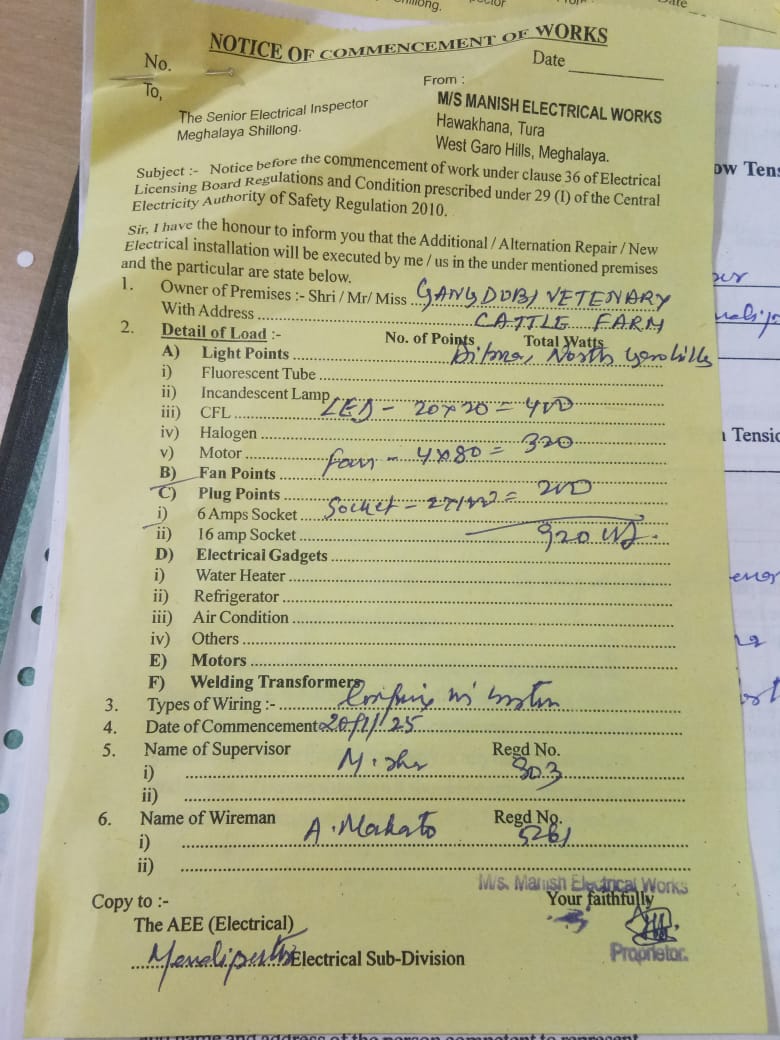 NOTICE OF COMMENCEMENT OF WORKS
No.
Date
To,
The Senior Electrical Inspector
Meghalaya Shillong.
From :
M/S MANISH ELECTRICAL WORKS
Hawakhana, Tura
West Garo Hills, Meghalaya.
Subject :- Notice before the commencement of work under clause 36 of Electrical
Licensing Board Regulations and Condition prescribed under 29 (I) of the Central
Electricity Authority of Safety Regulation 2010.
Sir, I have the honour to inform you that the Additional / Alternation Repair / New
Electrical installation will be executed by me / us in the under mentioned premises
and the particular are state below.
1. Owner of Premises :- Shri / Mr/ Miss GANGDUBI VETENARY
With Address CATTLE FARM
2. Detail of Load :- No. of Points Total Watts
A) Light Points North Garo Hills
i) Fluorescent Tube
ii) Incandescent Lamp
iii) CFL LED - 20x20 = 400
iv) Halogen
v) Motor 4x80 = 320
B) Fan Points
C) Plug Points
i) 6 Amps Socket Socket - 2x100 = 200
ii) 16 amp Socket 920
D) Electrical Gadgets
i) Water Heater
ii) Refrigerator
iii) Air Condition
iv) Others
E) Motors
F) Welding Transformers
3. Types of Wiring :-
4. Date of Commencement 20/1/25
5. Name of Supervisor Regd No.
i) 303
ii)
6. Name of Wireman Regd No.
i) A. Makato 5261
ii)
M/s. Manish Electrical Works
Copy to :- Your faithfully
The AEE (Electrical)
Electrical Sub-Division
Proprietor.